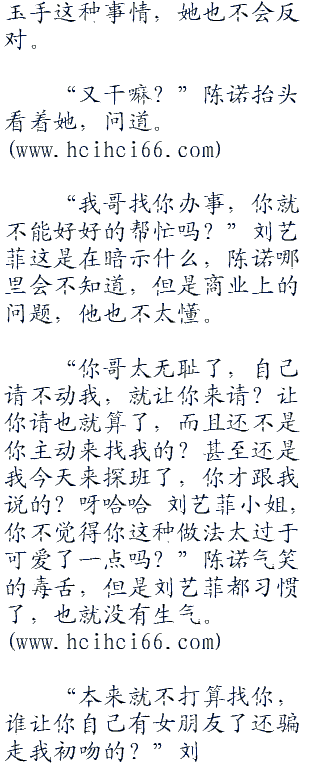 玉手这种事情，她也不会反
对。
“又干嘛？”陈诺抬头
看着她，问道。
(www.hcihci66.com)
“我哥找你办事，你就
不能好好的帮忙吗？”刘艺
菲这是在暗示什么，陈诺哪
里会不知道，但是商业上的
问题，他也不太懂。
“你哥太无耻了，自己
请不动我，就让你来请？让
你请也就算了，而且还不是
你主动来找我的？甚至还是
我今天来探班了，你才跟我
说的？呀哈哈 刘艺菲小姐，
你不觉得你这种做法太过于
可爱了一点吗？”陈诺气笑
的毒舌，但是刘艺菲都习惯
了，也就没有生气。
(www.hcihci66.com)
“本来就不打算找你，
谁让你自己有女朋友了还骗
走我初吻的？”刘